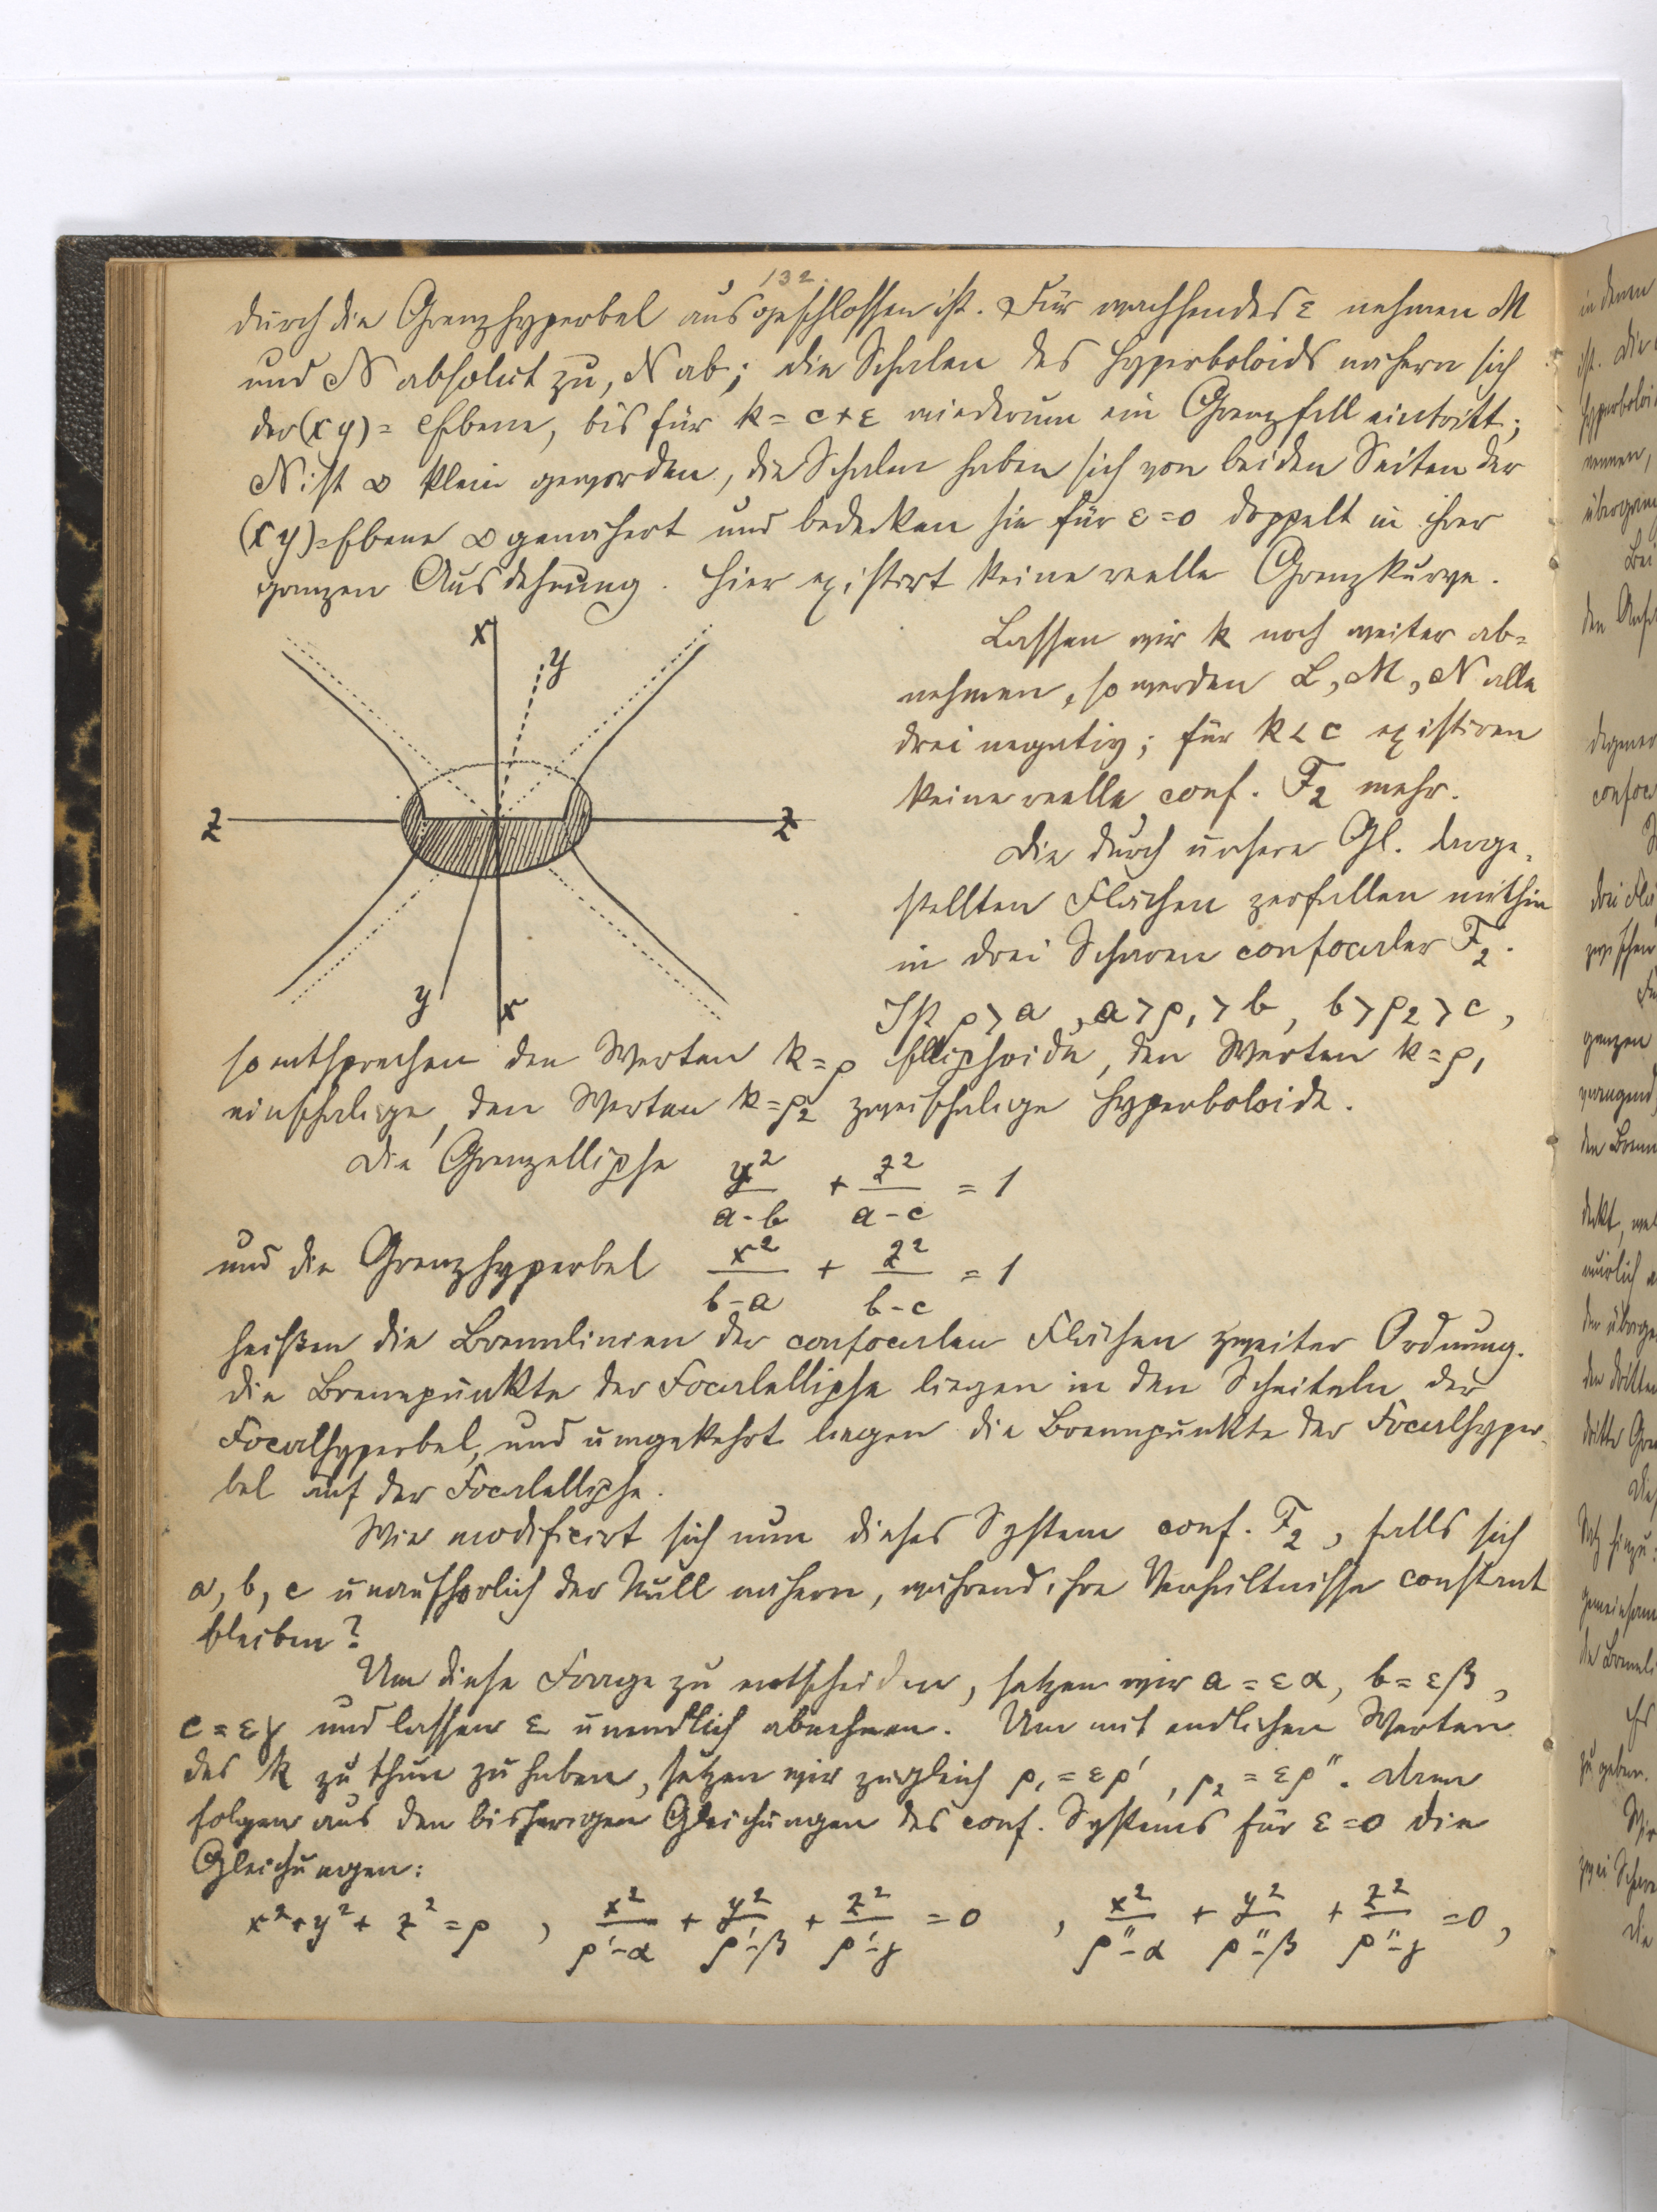 132.
durch die Grenzhyperbel ausgeschlossen ist. Für wachsendes ε nehmen M
und N absolut zu, N ab; die Schalen des Hyperboloids nähern sich
der (xy) = Ebene, bis für k = c + ε wiederum ein Grenzfall eintritt;
N ist ∞ klein geworden, die Schalen haben sich von beiden Seiten der
(xy) = Ebene ∞ genähert und bedecken sie für ε = 0 doppelt in ihrer
ganzen Ausdehnung. Hier existirt keine reelle Grenzkurve.
Lassen wir k noch weiter ab=
nehmen, so werden L, M, N alle
drei negativ; für k < c existiren
keine reelle conf. F₂ mehr.
Die durch unsere Gl. darge-
stellten Flächen zerfallen mithin
in drei Scharen confocaler F₂.
Ist ρ > a, a > ρ₁ > b, b > ρ₂ > c,
x
y
z
z
y
x
so entsprechen den Werten k = ρ Ellipsoide, den Werten k = ρ₁
einschalige, den Werten k = ρ₂ zweischalige Hyperboloide.
Die Grenzellipse y²/(a-b) + z²/(a-c) = 1
und die Grenzhyperbel x²/(b-a) + z²/(b-c) = 1
heißen die Brennlinien der confocalen Flächen zweiter Ordnung.
Die Brennpunkte der Focalellipse liegen in den Scheiteln der
Focalhyperbel, und umgekehrt liegen die Brennpunkte der Focalhyper-
bel auf der Focalellipse.
Wie modificirt sich nun dieses System conf. F₂, falls sich
a, b, c unaufhörlich der Null nähern, während ihre Verhältnisse constant
bleiben?
Um diese Frage zu entscheiden, setzen wir a = εα, b = εβ,
c = εγ und lassen ε unendlich abnehmen. Um mit endlichen Werten
des k zu thun zu haben, setzen wir zugleich ρ₁ = ερ', ρ₂ = ερ". Dann
folgen aus den bisherigen Gleichungen des conf. Systems für ε = 0 die
Gleichungen:
x² + y² + z² = ρ, x²/(ρ'-α) + y²/(ρ'-β) + z²/(ρ'-γ) = 0, x²/(ρ"-α) + y²/(ρ"-β) + z²/(ρ"-γ) = 0,